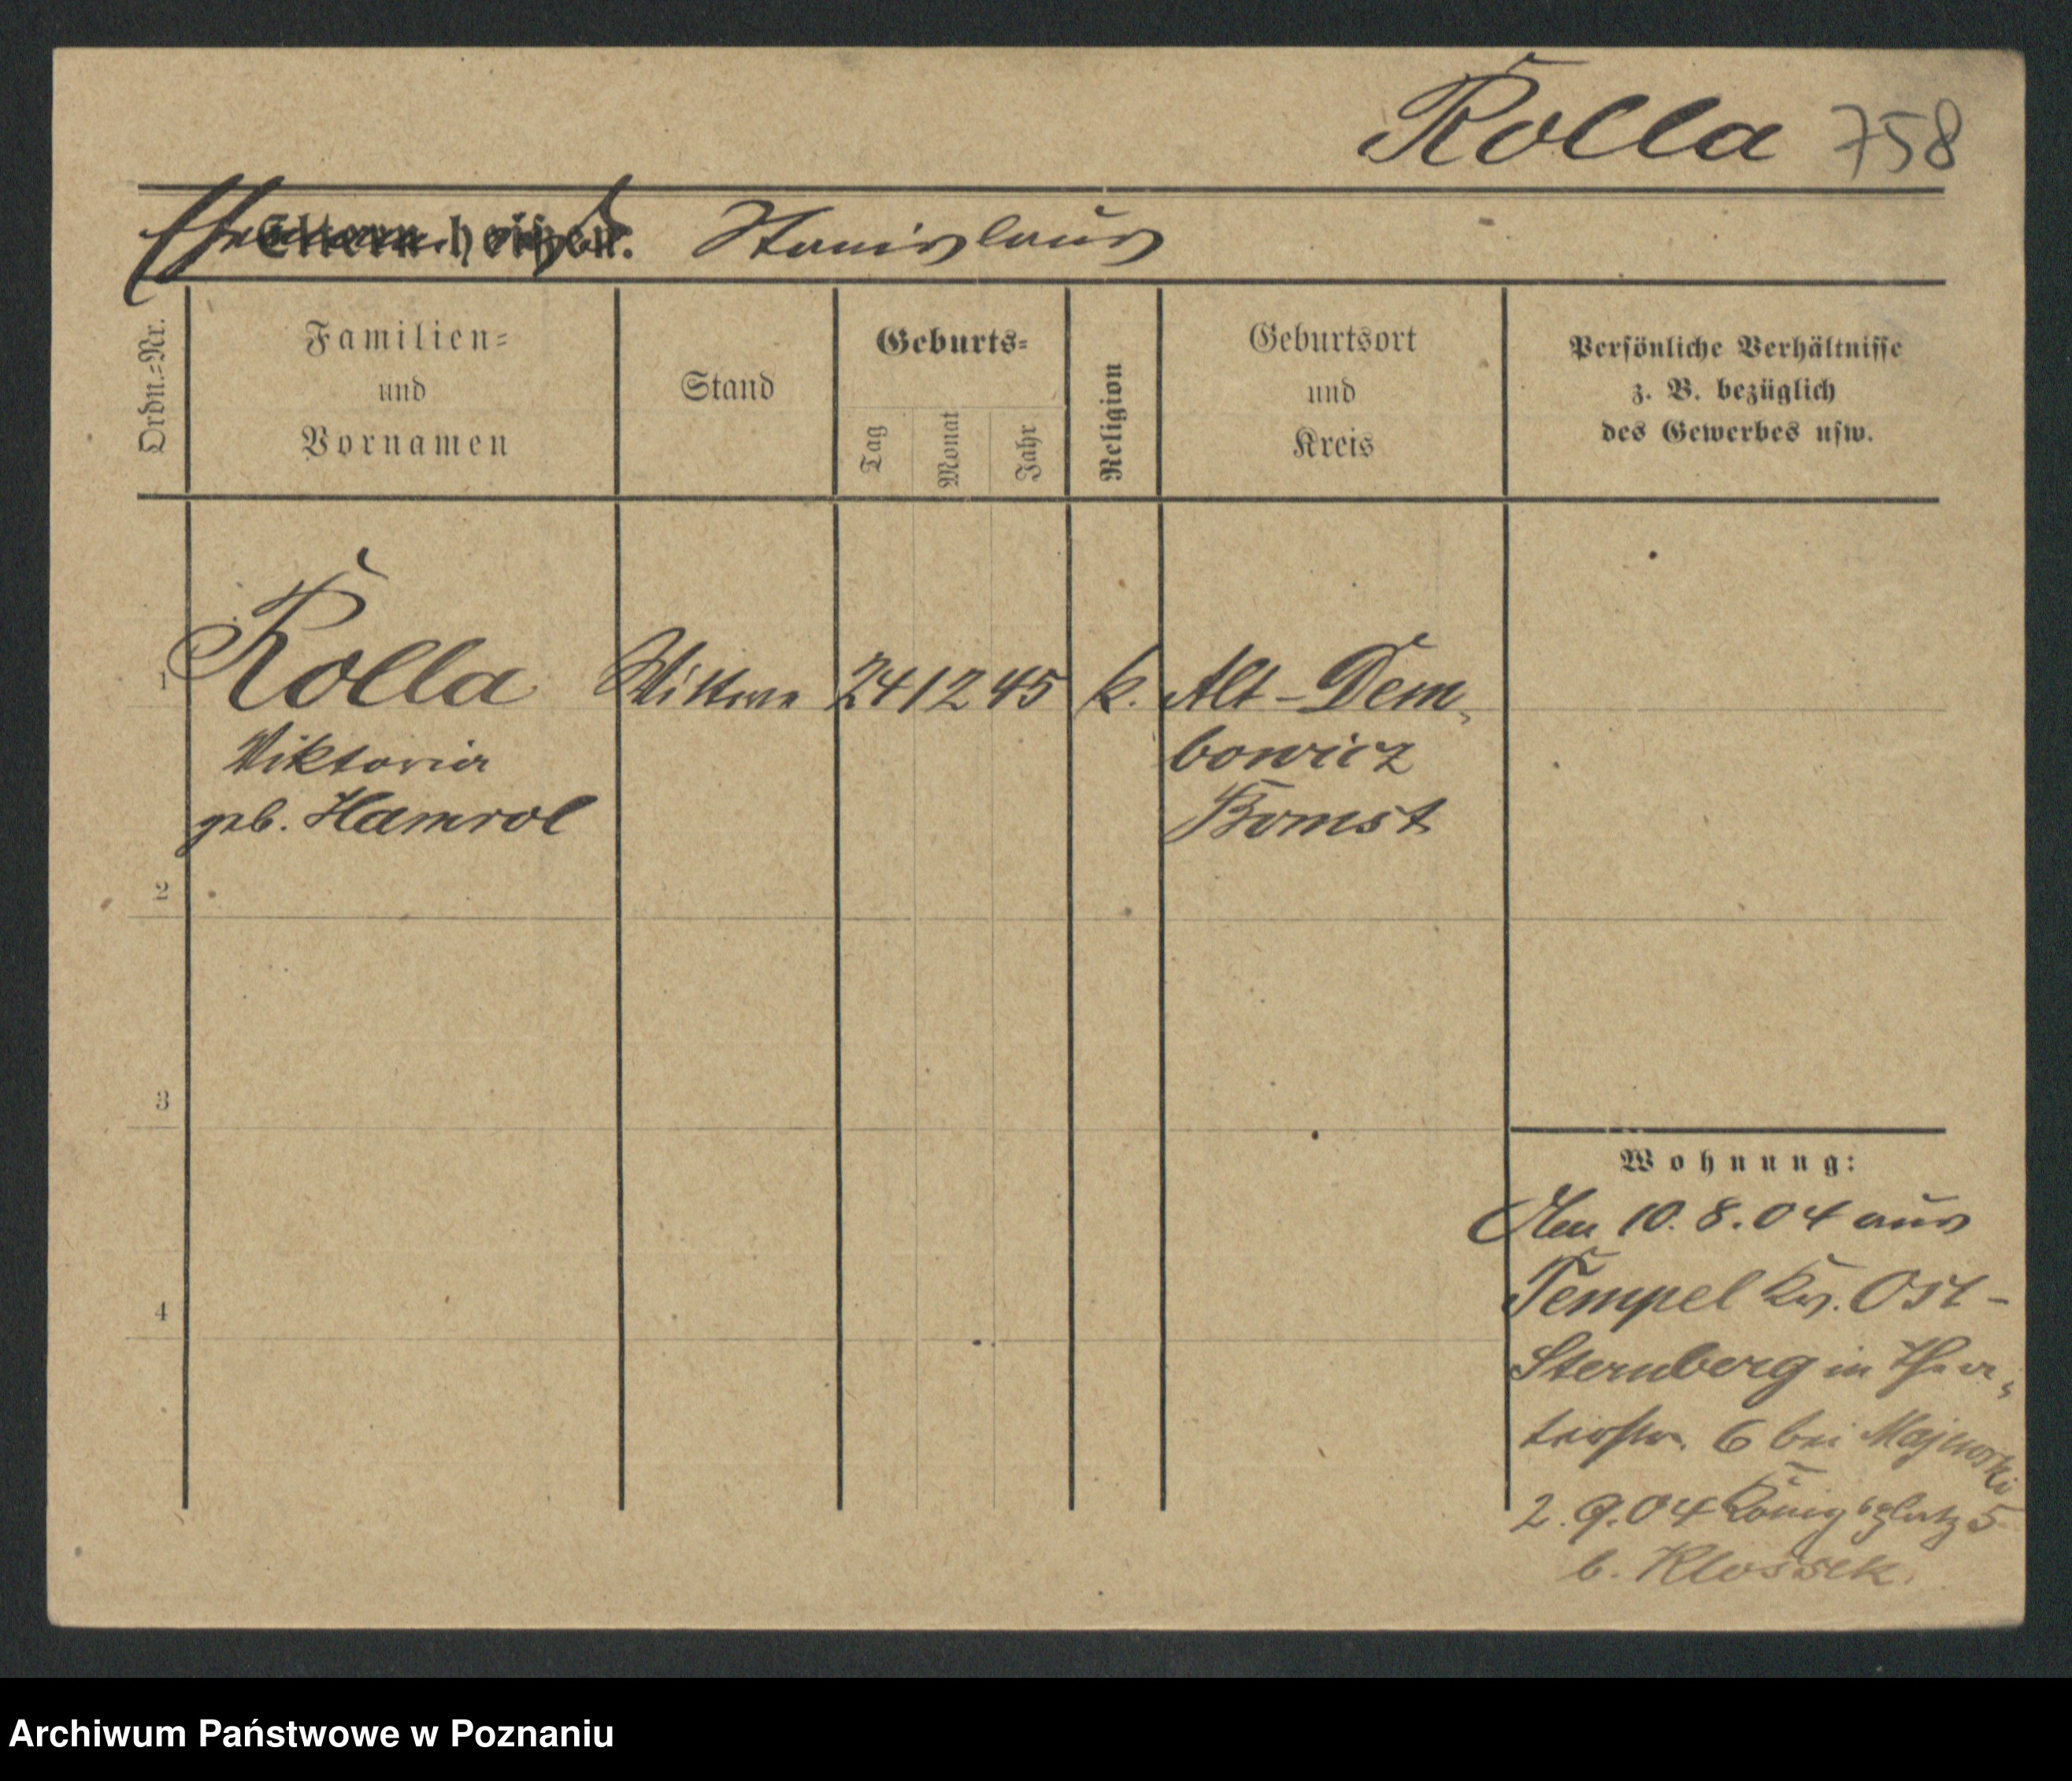 Rolla 758
Eltern heißen: Stanislaus
Ordn.-Nr.
Familien-
und
Vornamen
Stand
Geburts-
Tag
Monat
Jahr
Religion
Geburtsort
und
Kreis
Persönliche Verhältnisse
z. B. bezüglich
des Gewerbes usw.
1 Rolla Wittwe 24 12 45 k. Alt-Dem-
Viktoria bowicz
geb. Hamrol Bomst
2
3
4
Wohnung:
Am 10.8.04 aus
Tempel Kr. Ost-
Sternberg in Thea-
terstr. 6 bei
2.9.04 Königsplatz 5
b. Klossek.
Archiwum Państwowe w Poznaniu